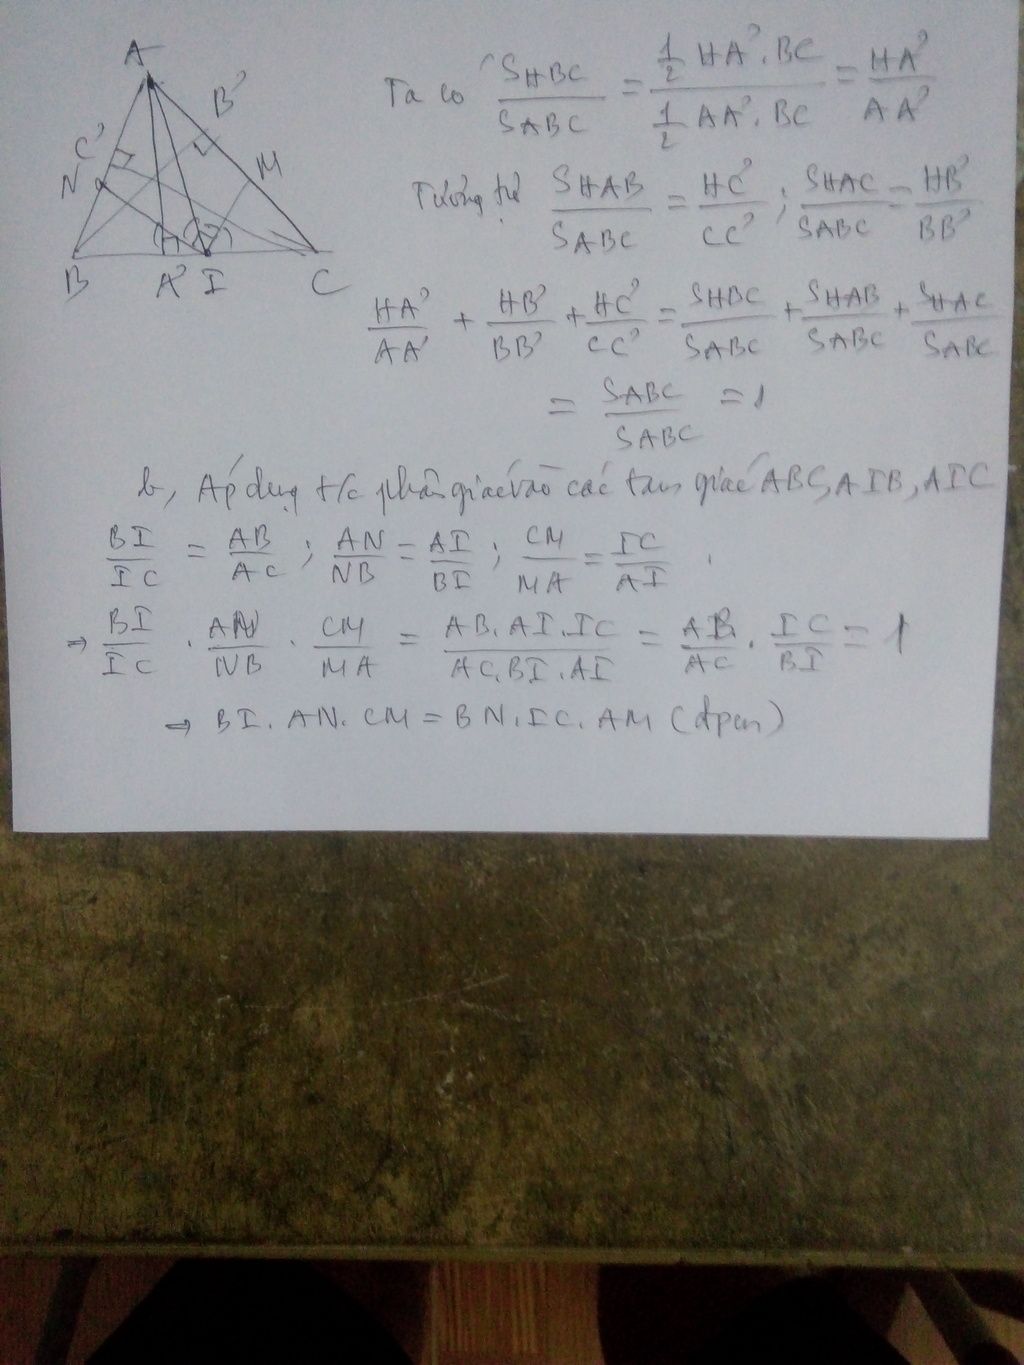 A
B'
C'
N
M
B
A' I
C
Ta có S_HBC / S_ABC = (1/2 HA'.BC) / (1/2 AA'.BC) = HA' / AA'
Tương tự S_HAB / S_ABC = HC' / CC' ; S_HAC / S_ABC = HB' / BB'
HA' / AA' + HB' / BB' + HC' / CC' = S_HBC / S_ABC + S_HAB / S_ABC + S_HAC / S_ABC
= S_ABC / S_ABC = 1
b, Áp dụng t/c phân giác vào các tam giác ABC, AIB, AIC
BI / IC = AB / AC ; AN / NB = AI / BI ; CM / MA = IC / AI .
⇒ BI / IC . AN / NB . CM / MA = AB.AI.IC / AC.BI.AI = AB / AC . IC / BI = 1
⇒ BI.AN.CM = BN.IC.AM (đpcm)